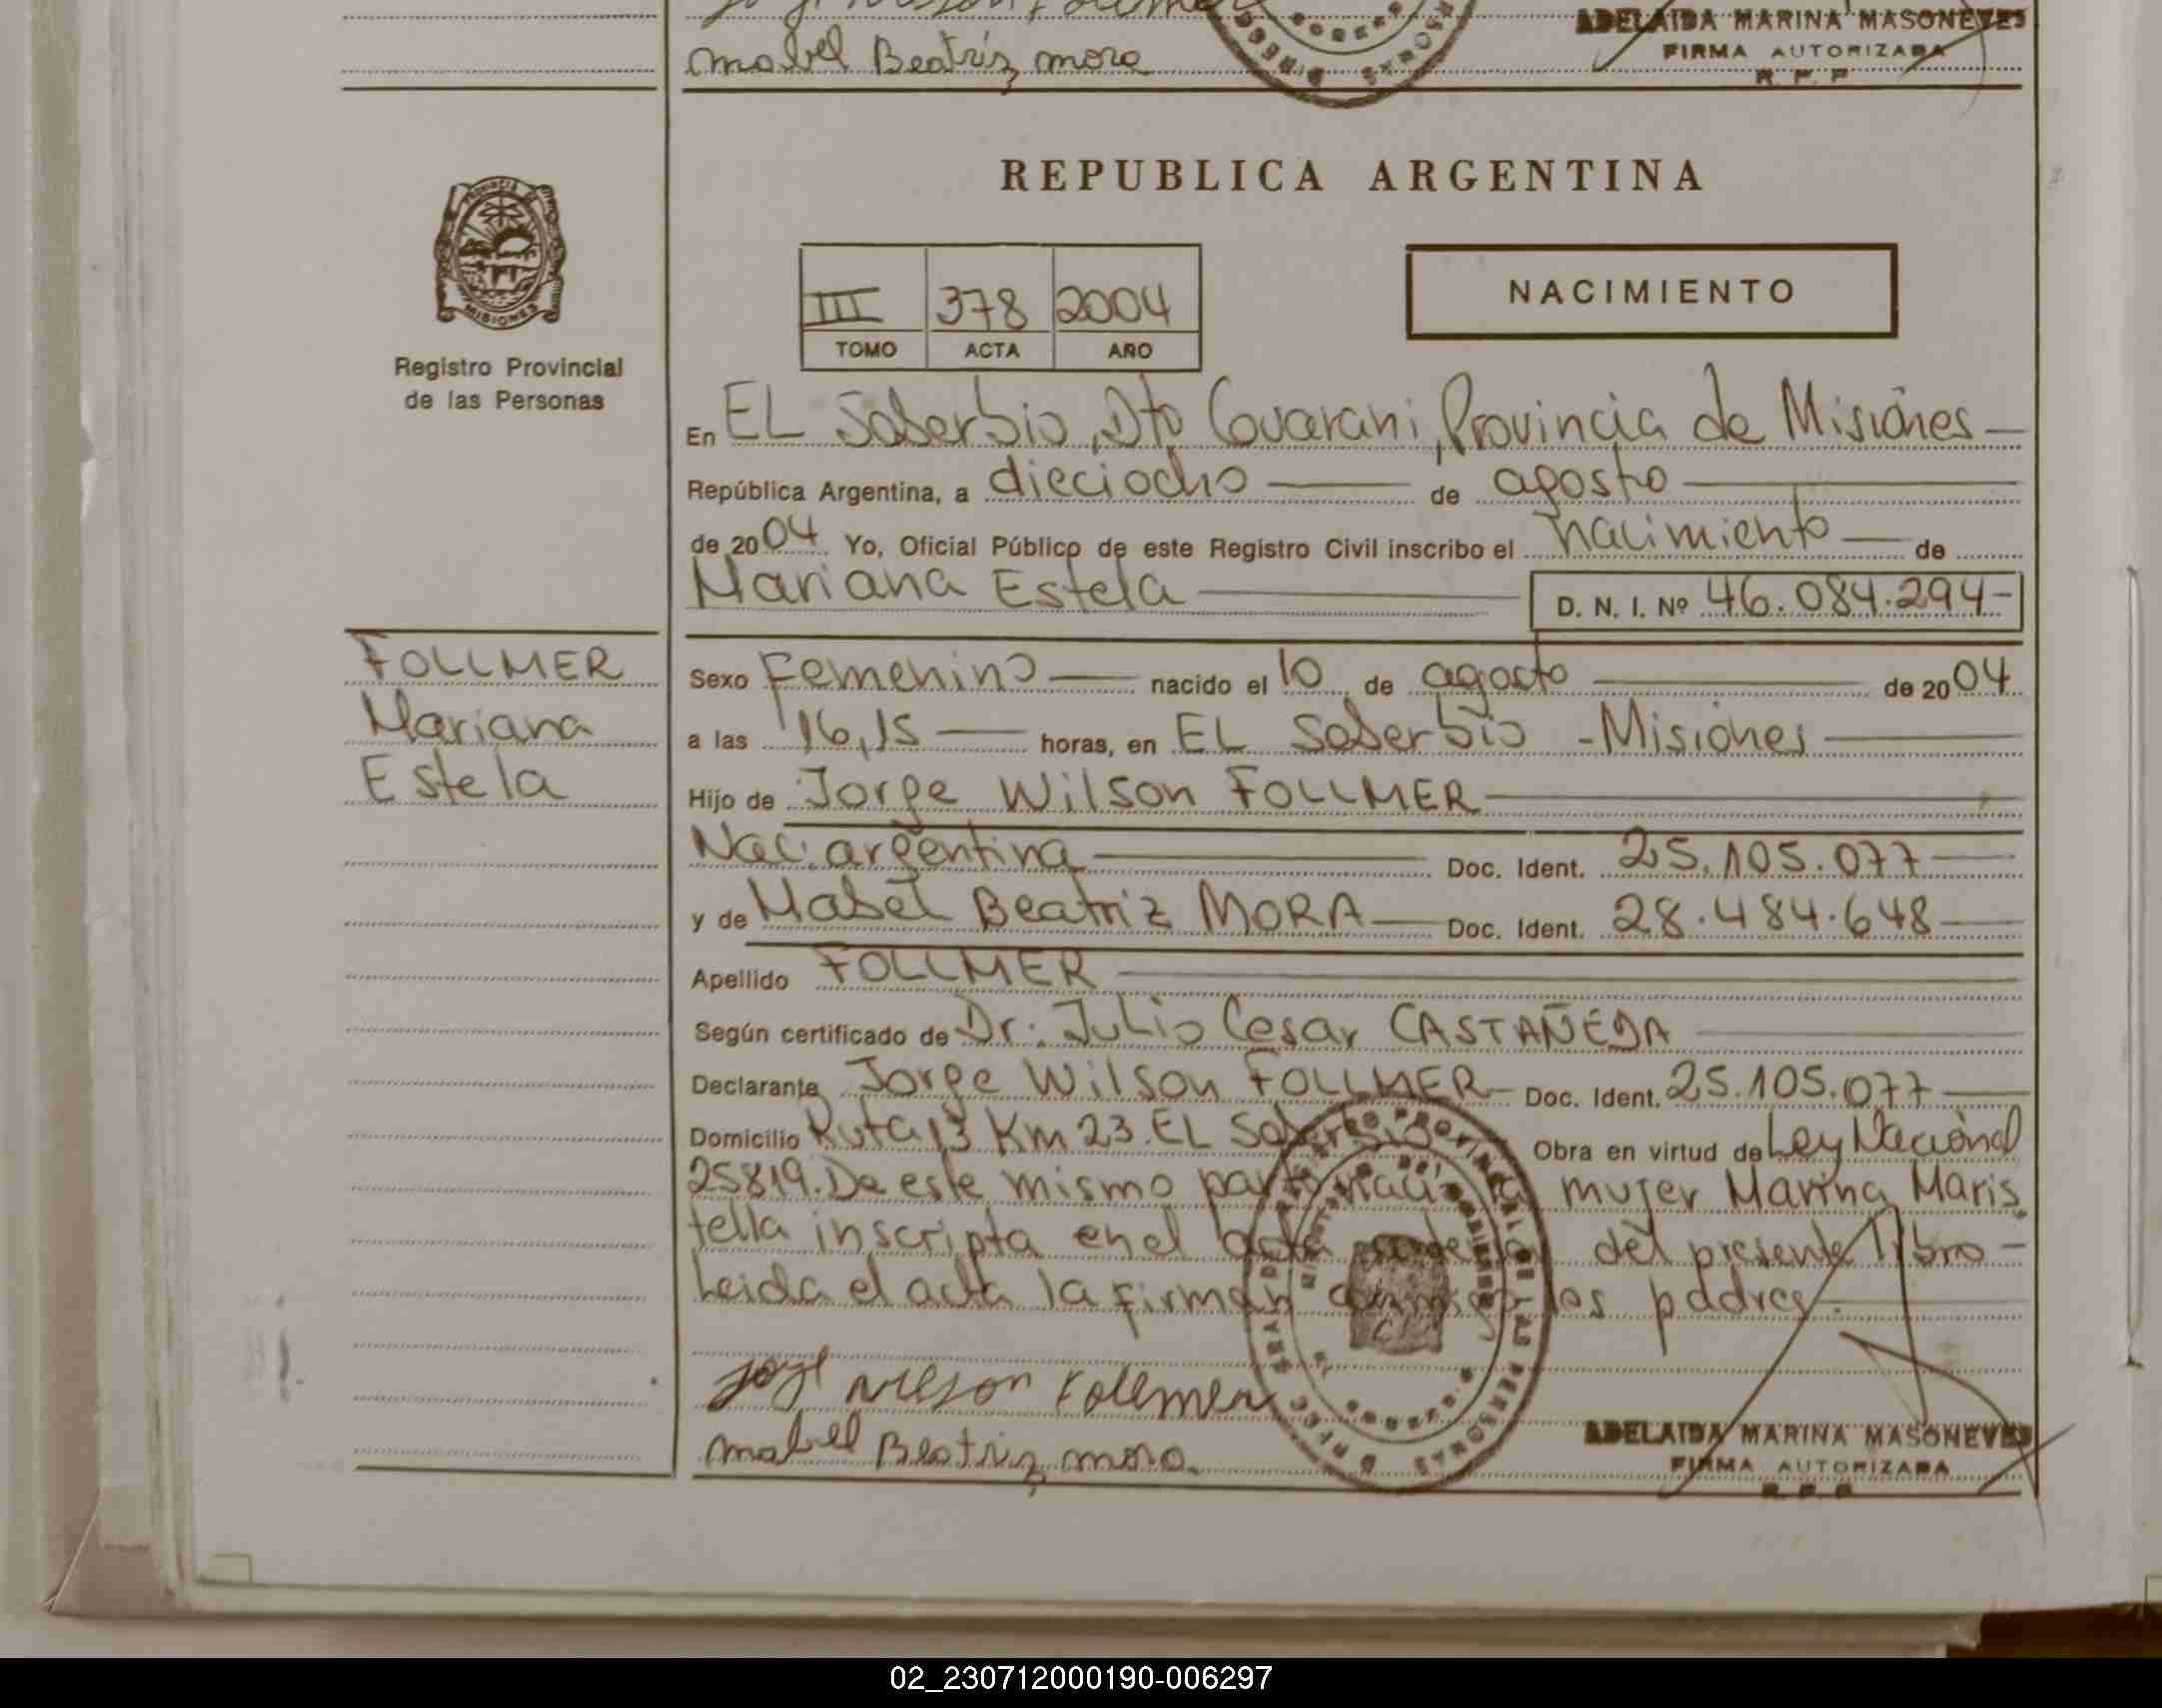 Mabel Beatriz mora
ADELAIDA MARINA MASONEVES
FIRMA AUTORIZADA
R. P. P
REPUBLICA ARGENTINA
MISIONES
III 378 2004
TOMO ACTA AÑO
NACIMIENTO
Registro Provincial
de las Personas
En EL Soberbio, Dto Guarani, Provincia de Misiones
República Argentina, a dieciocho de agosto
de 2004 Yo, Oficial Público de este Registro Civil inscribo el nacimiento de
Mariana Estela D. N. I. Nº 46.084.294-
FOLLMER
Mariana
Estela
Sexo Femenino nacido el 10 de agosto de 2004
a las 16,15 horas, en EL Soberbio - Misiones
Hijo de Jorge Wilson FOLLMER
Nac. argentina Doc. Ident. 25.105.077
y de Mabel Beatriz MORA Doc. Ident. 28.484.648
Apellido FOLLMER
Según certificado de Dr. Julio Cesar CASTAÑEDA
Declarante Jorge Wilson FOLLMER Doc. Ident. 25.105.077
Domicilio Ruta 13 Km 23. EL Soberbio Obra en virtud de Ley Nacional
25819. De este mismo parto nació mujer Marina Maris
tella inscripta en el acta anterior del presente libro
Leida el acta la firman conmigo los padres.
Jorge Wilson Follmer
Mabel Beatriz mora
ADELAIDA MARINA MASONEVES
FIRMA AUTORIZADA
R. P. P
02_230712000190-006297